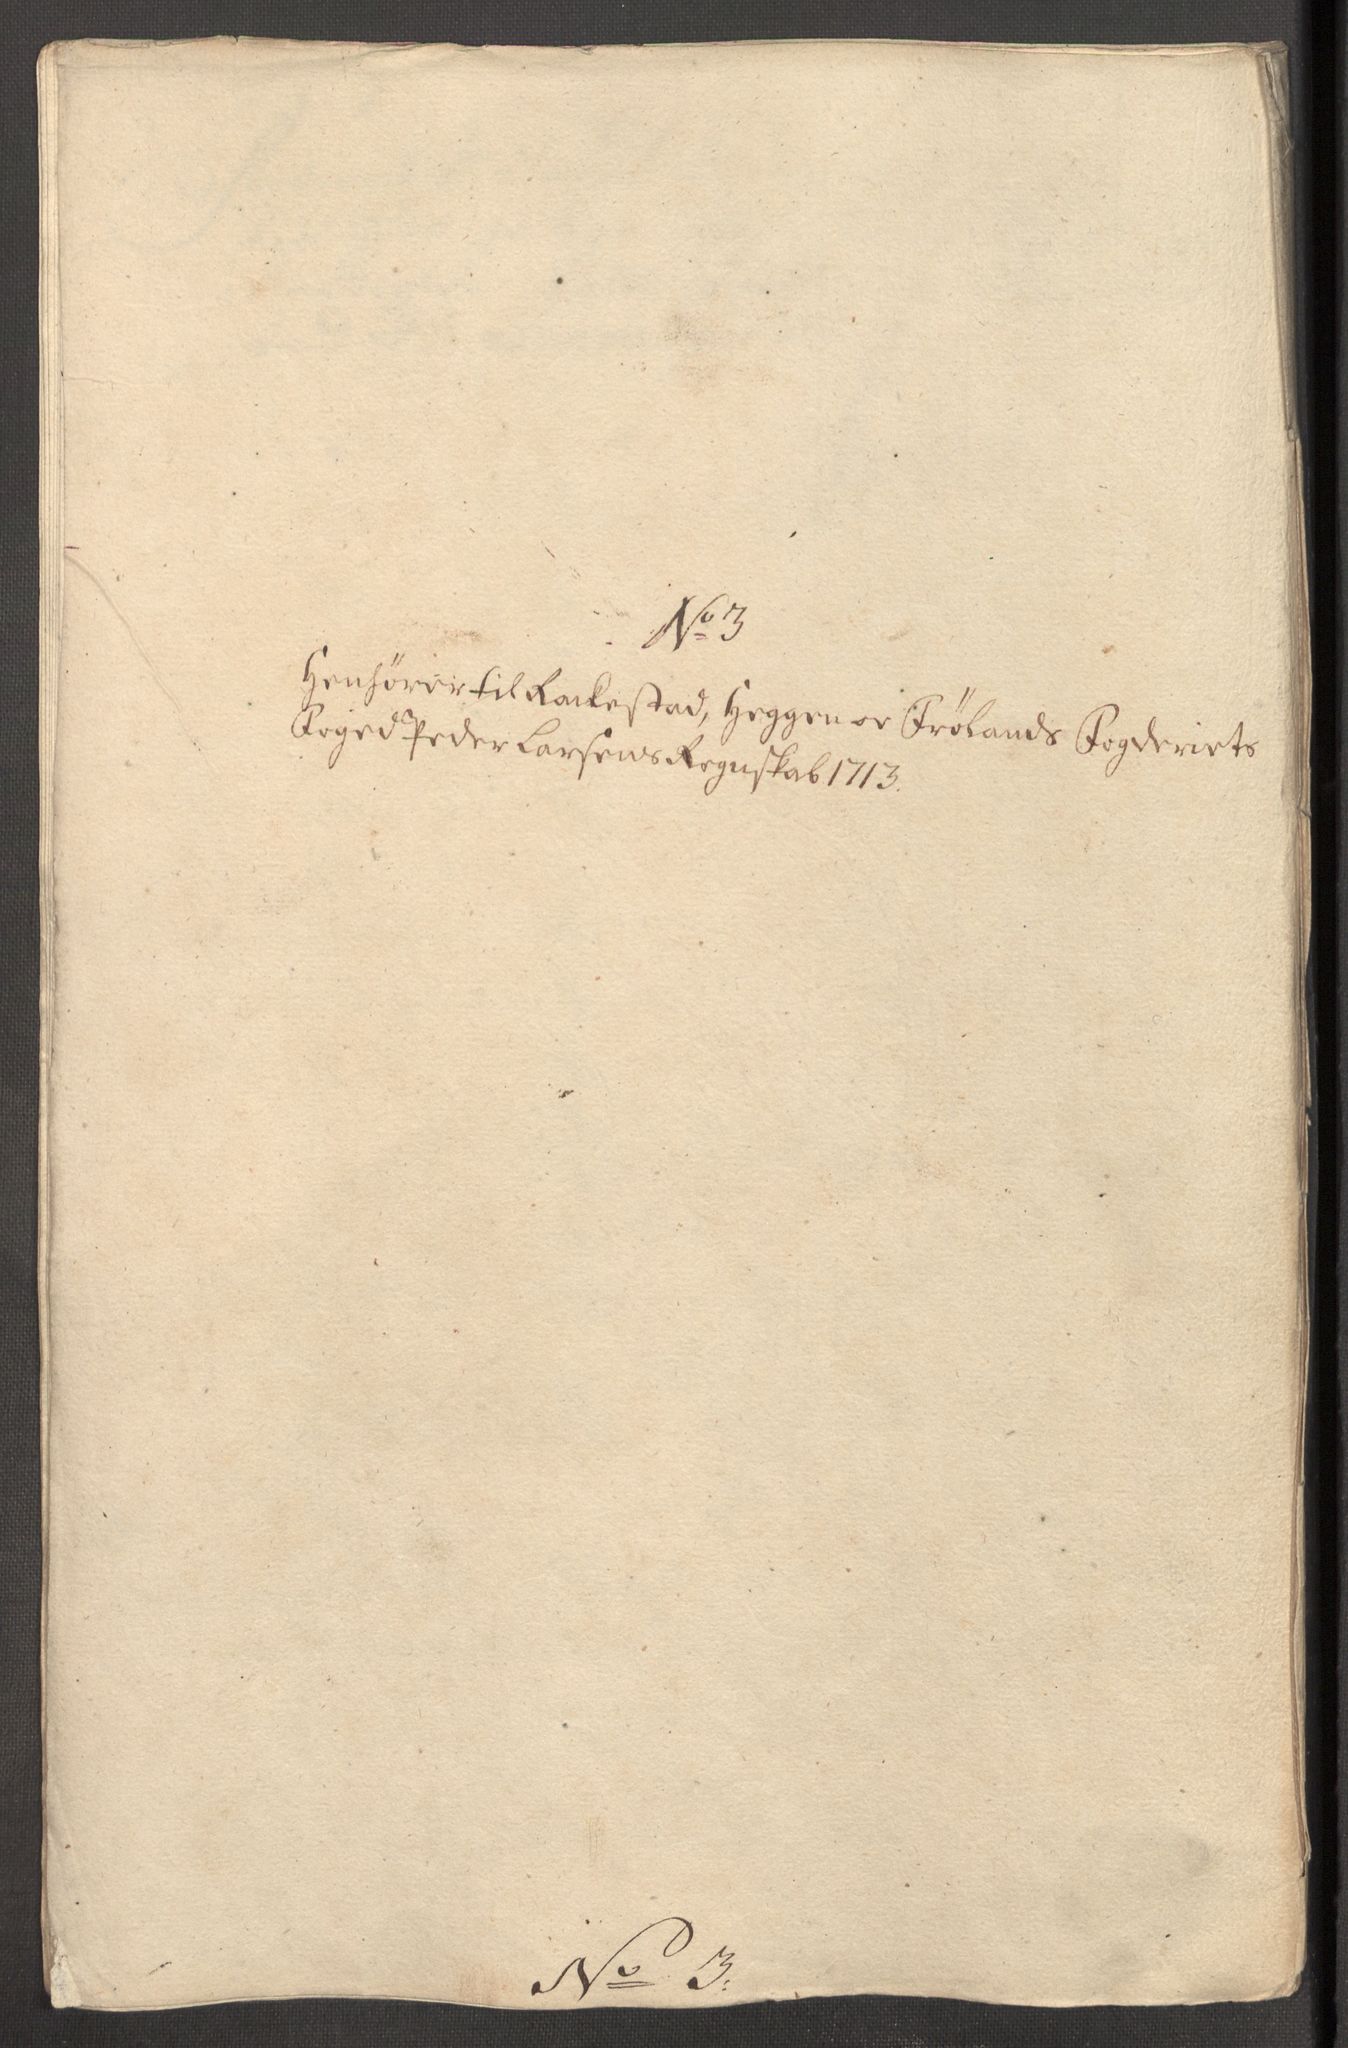 No 3
Henhører til Rackestad, Heggen oc Frølands Fogderiets
Foged Peder Larsens Regnskab 1713.
No 3.